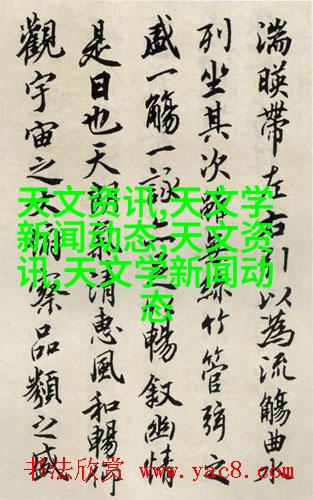 湍暎帶左右引以為流觴曲
列坐其次雖無絲竹管弦之
盛一觴一詠亦足暢敘幽情
是日也天氣清惠風和暢仰
觀宇宙之俯察品類之盛
天文资讯,天文学
新闻动态,天文资
讯,天文学新闻动
态
书法欣赏 www.yac8.com